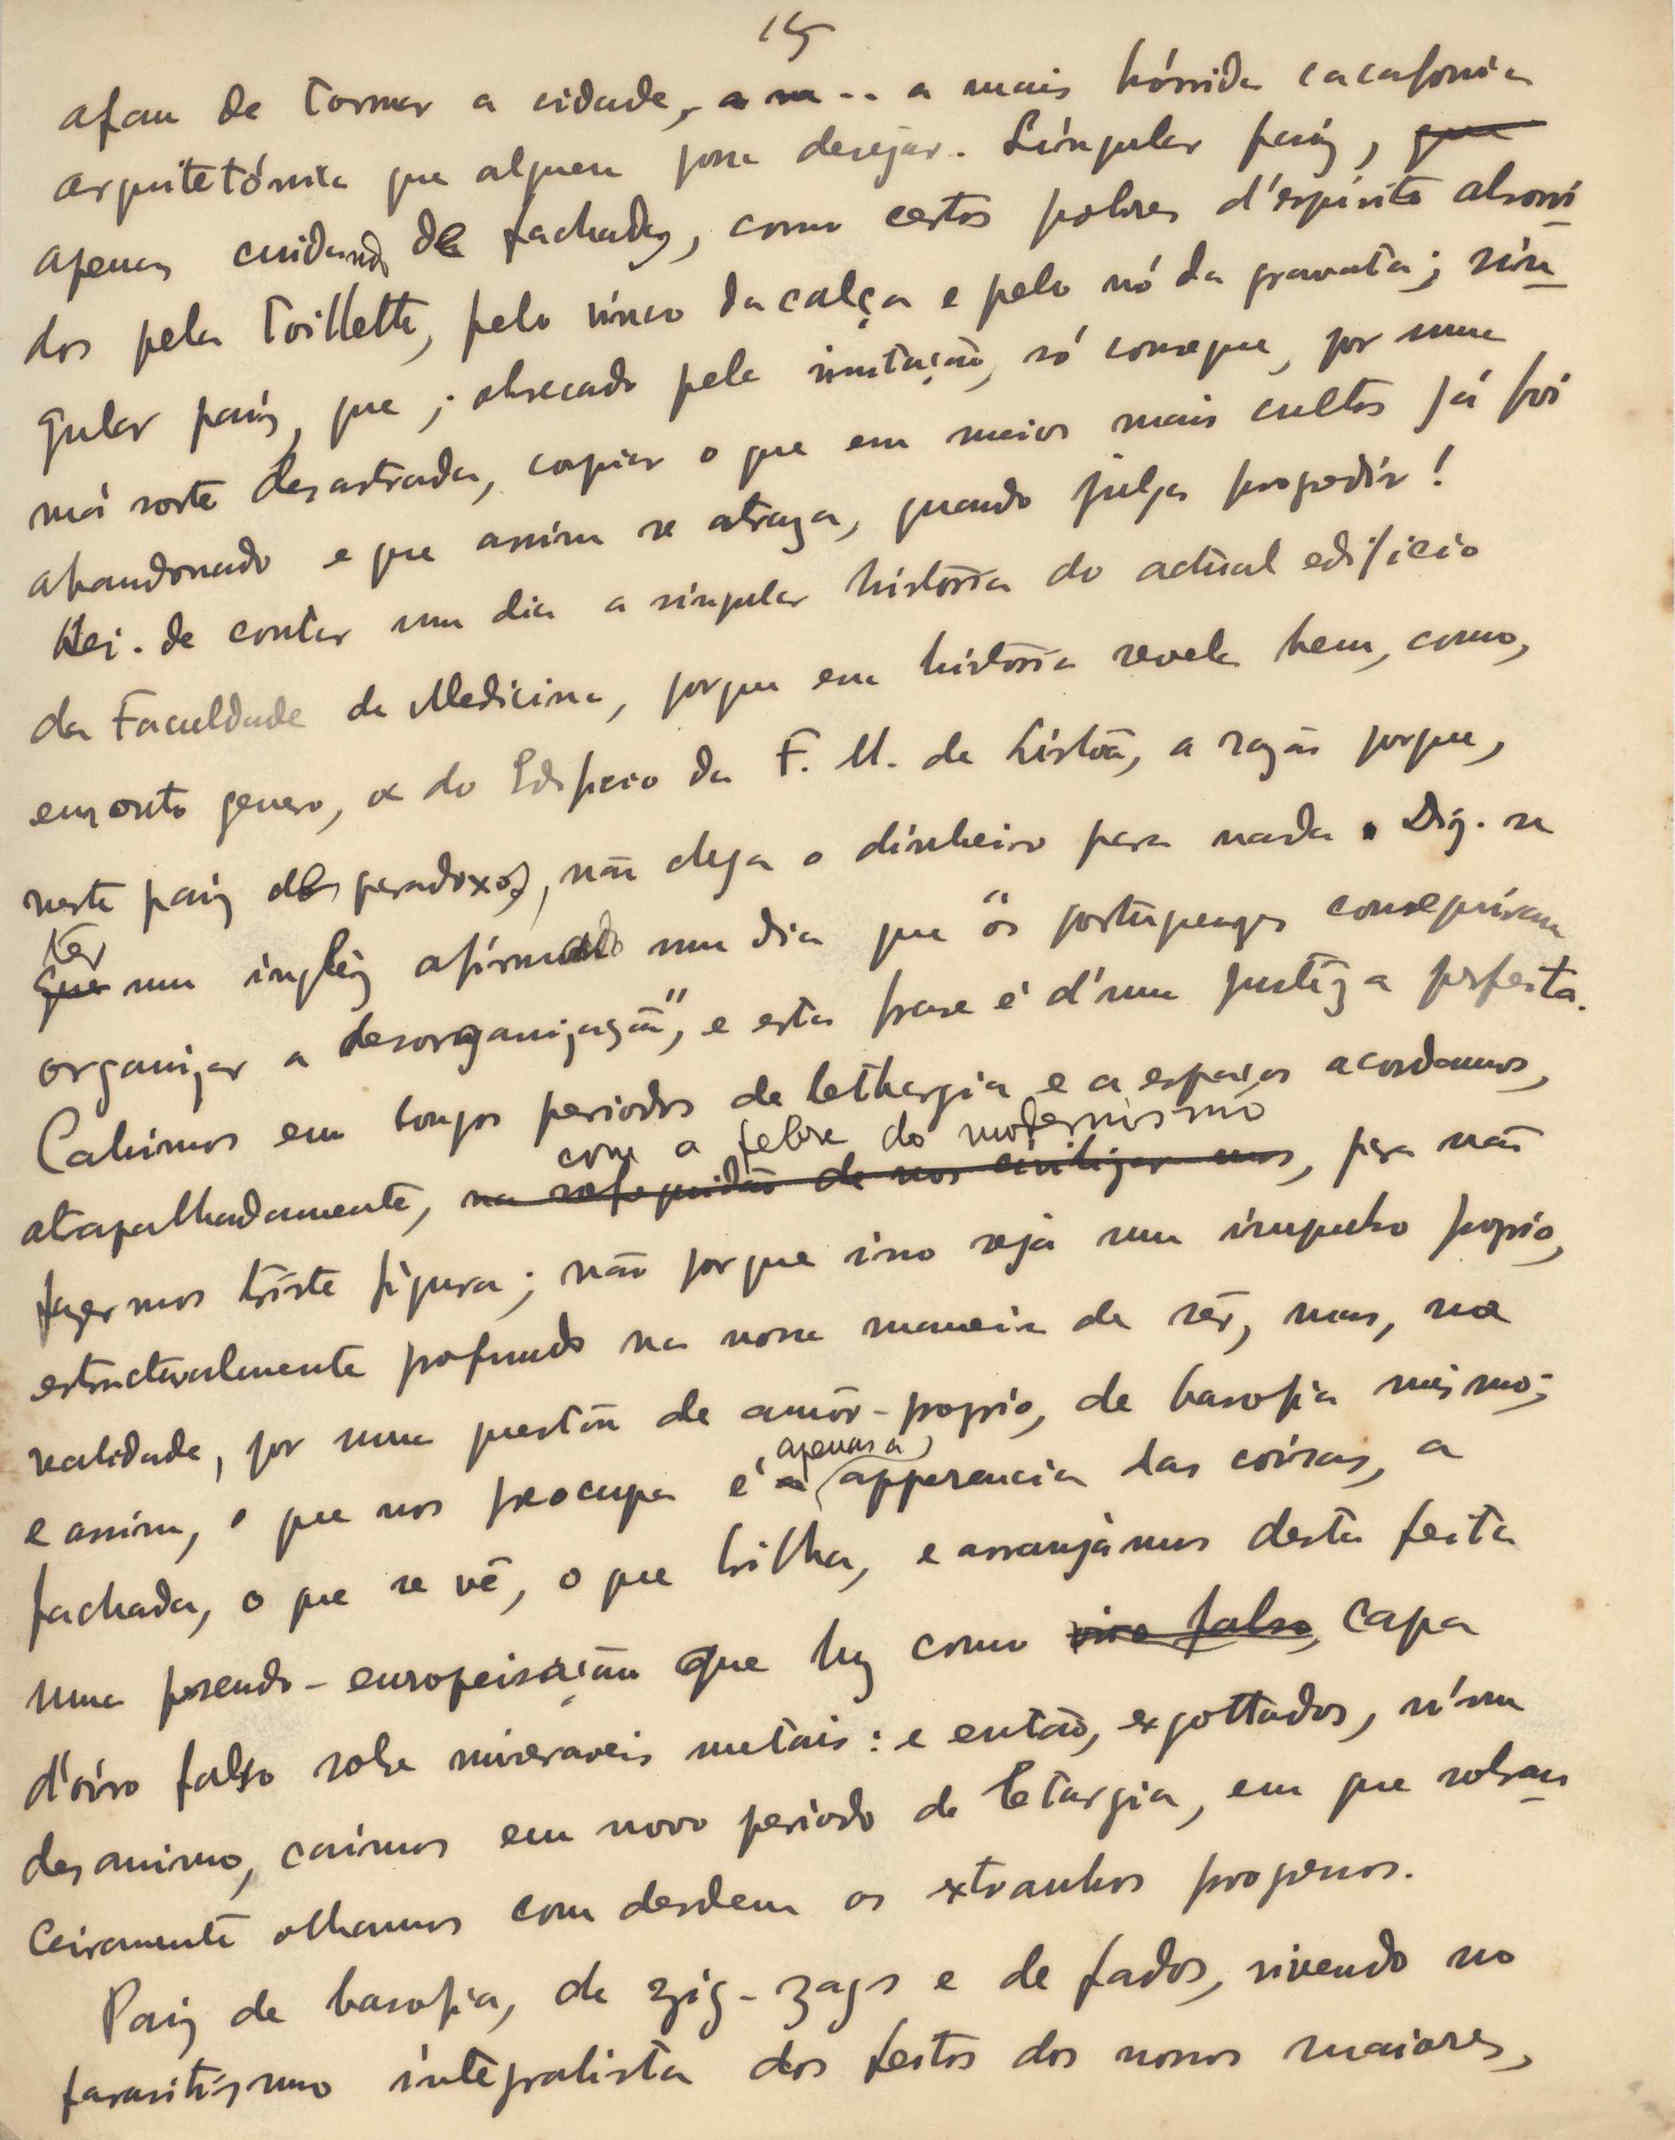 15
afan de tornar a cidade, a m... a mais hórrida cacafonia
arquitetónica que alguem possa desejar. Singular paiz, que
apenas cuidando de fachadas, como certos pobres d'espirito absorvi
dos pela toillette, pelo vinco da calça e pelo nó da gravata; sin
gular paiz, que, obsecado pela imitação, só consegue, por uma
má sorte desastrada, copiar o que em meios mais cultos já foi
abandonado e que assim se atraza, quando julga progedir!
Hei-de contar um dia a singular história do actual edificio
da Faculdade de Medicina, porque essa história revela bem, como,
em outro genero, a do Edificio da F. M. de Lisbôa, a razão porque,
neste paiz dos paradoxos, não chega o dinheiro para nada. Diz-se
ter
que um inglêz afirmado um dia que "os portuguezes conseguiram
organizar a desorganização", e esta frase é d'uma justêza perfeita.
Cahimos em longos periodos de lethargia e a espaços acordamos,
com a febre do modernismo
atrapalhadamente, na de nos civilizar mos, para não
fazermos triste figura; não porque isso seja um impulso proprio,
estructuralmente profundo na nossa maneira de sêr, mas, na
realidade, por uma questão de amôr-proprio, de basofia mesmo;
apenas a
e assim, o que nos preocupa é a apparencia das coisas, a
fachada, o que se vê, o que brilha, e arranjámos desta feita
uma pseudo-europeisação que luz como oiro falso, capa
d'oiro falso sobre miseraveis metais: e então, exgottados, n'um
desanimo, caímos em novo periodo de letargia, em que sobran
ceiramente olhamos com desdem os extranhos progressos.
Paiz de basofia, de zig-zags e de fados, vivendo no
parasitismo integralista dos feitos dos nossos maiores,